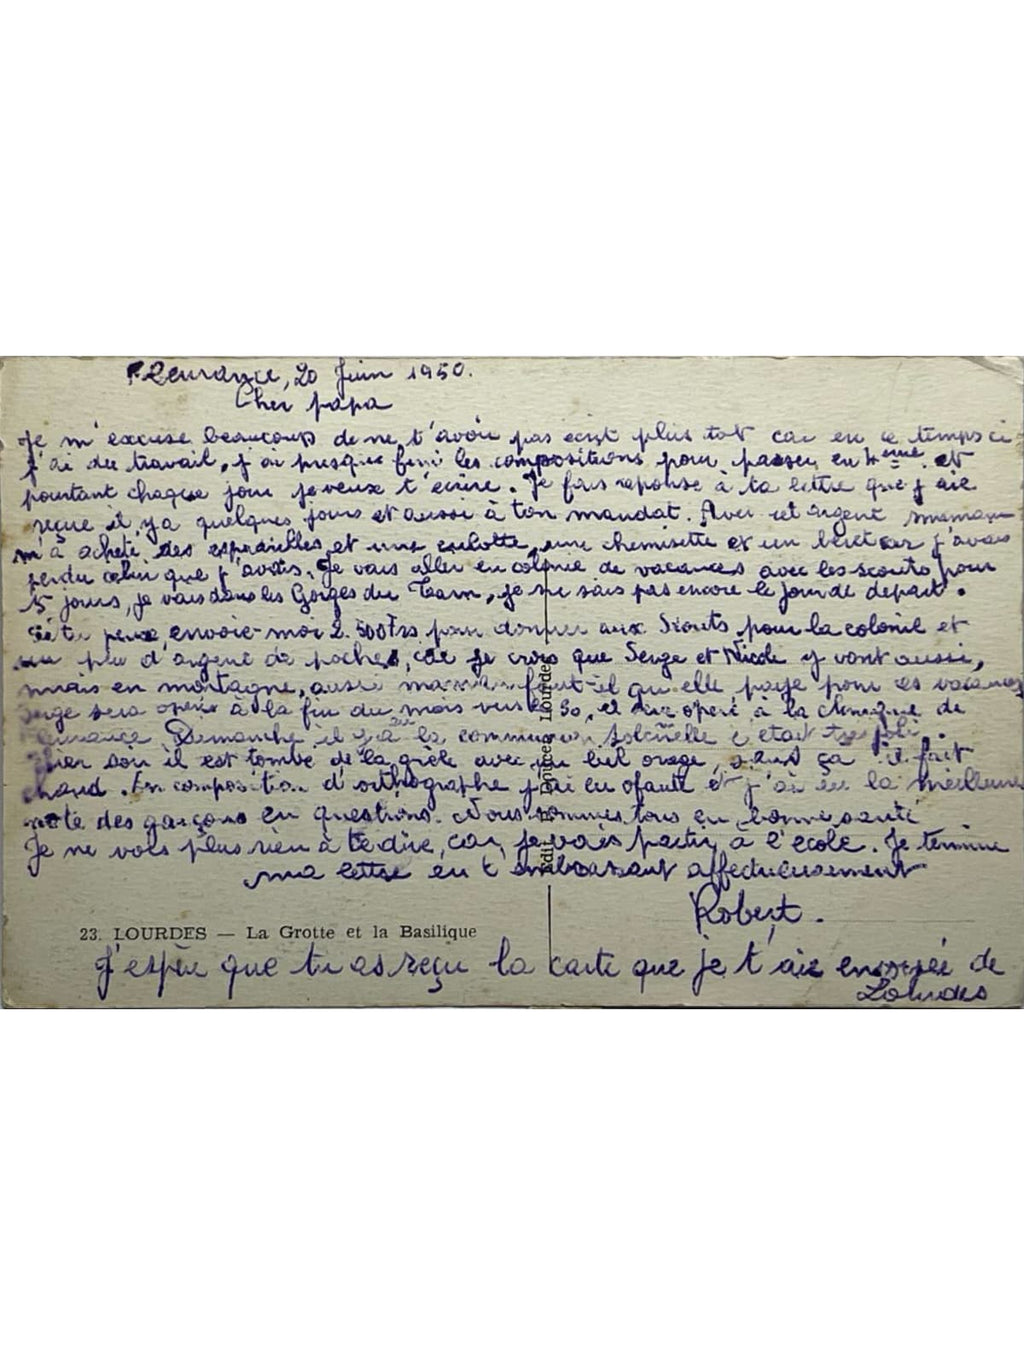 Fleurance, 20 Juin 1950.
Cher papa
Je m'excuse beaucoup de ne t'avoir pas écrit plus tot car en ce temps ci
j'ai du travail, j'ai presque fini les compositions pour passer en 4ème et
pourtant chaque jour je veux t'écrire. Je fais reponse à ta lettre que j'aie
reçue il y a quelques jours et aussi à ton mandat. Avec cet argent maman
m'à acheté des espadrilles et une culotte, une chemisette et un béret car j'avais
perdu celui que j'avais. Je vais aller en colonie de vacances avec les scouts pour
15 jours, je vais dans les Gorges du Tarn, je ne sais pas encore le jour de départ.
Si tu peux, envoie-moi 2.500 Frs pour donner aux Scouts pour la colonie et
un peu d'argent de poches, car je crois que Serge et Nicole y vont aussi,
mais en montagne, aussi maman faut-il qu'elle paye pour ces vacances
Serge sera opéré à la fin du mois vers le 30, il sera opéré à la clinique de
Fleurance Dimanche il y a la communion solennelle c'etait tres joli.
Hier soir il est tombé de la grèle avec un bel orage, sans ça il fait
chaud. En composition d'orthographe j'ai eu 0 faute et j'ai eu la meilleure
note des garçons en questions. Nous sommes tous en bonne santé
Je ne vois plus rien à te dire, car je vais partir à l'école. Je termine
ma lettre en t'embrassant affectueusement
Robert.
Edit. B. Doucet Lourdes
23. LOURDES — La Grotte et la Basilique
J'espère que tu as reçu la carte que je t'aie envoyée de
Lourdes